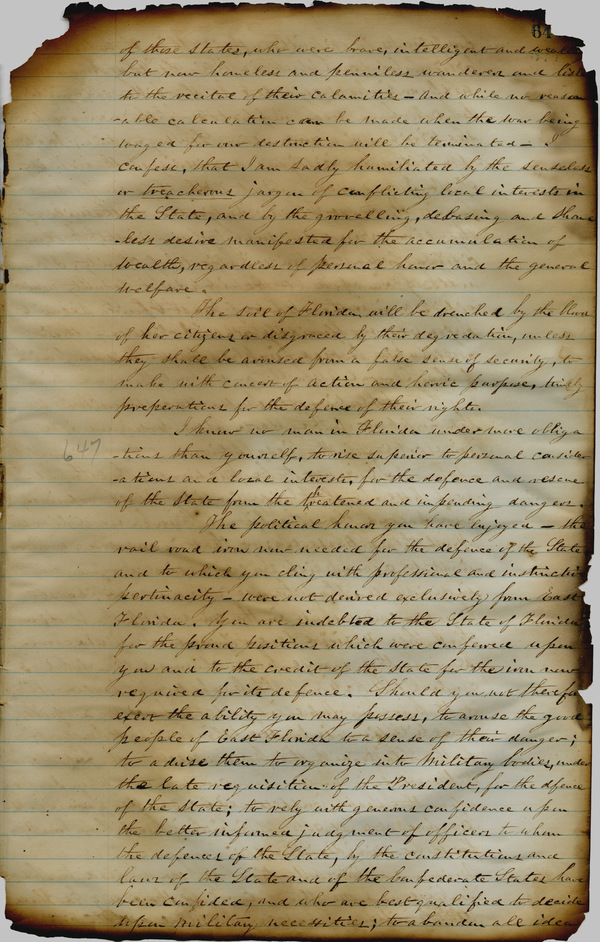 64
of those States, who were brave, intelligent and wealthy
but now homeless and penniless wanderers and listen
to the recital of their calamities – and while no reason
-able calculation can be made when the war being
waged for our destruction will be terminated – I
confess, that I am sadly humiliated by the senseless
or treacherous jargon of conflicting local interests in
the State, and by the grovelling, debasing and shame
-less desire manifested for the accumulation of
wealth, regardless of personal honor and the general
welfare.
The soil of Florida will be drenched by the blood
of her citizens or disgraced by their degredation, unless
they shall be aroused from a false sense of security, to
make with concert of action and heroic purpose, timely
preperations for the defence of their rights.
I know no man in Florida under more obliga
647
-tions than yourself, to rise superior to personal consider
-ations and local interests, for the defence and rescue
of the State from the threatened and impending dangers.
The political honor you have enjoyed – the
rail road iron now needed for the defence of the State
and to which you cling with professional and instinctive
pertinacity – were not derived exclusively from East
Florida. You are indebted to the State of Florida
for the proud positions which were conferred upon
you and to the credit of the State for the iron now
required for its defence. Should you not therefore
exert the ability you may possess, to arouse the good
people of East Florida to a sense of their danger;
to advise them to organize into Military bodies, under
the late requisition of the President, for the defence
of the State; to rely with generous confidence upon
the better informed judgment of officers to whom
the defences of the State, by the constitutions and
laws of the State and of the Confederate States have
been confided, and who are best qualified to decide
upon military necessities; to abandon all ideas